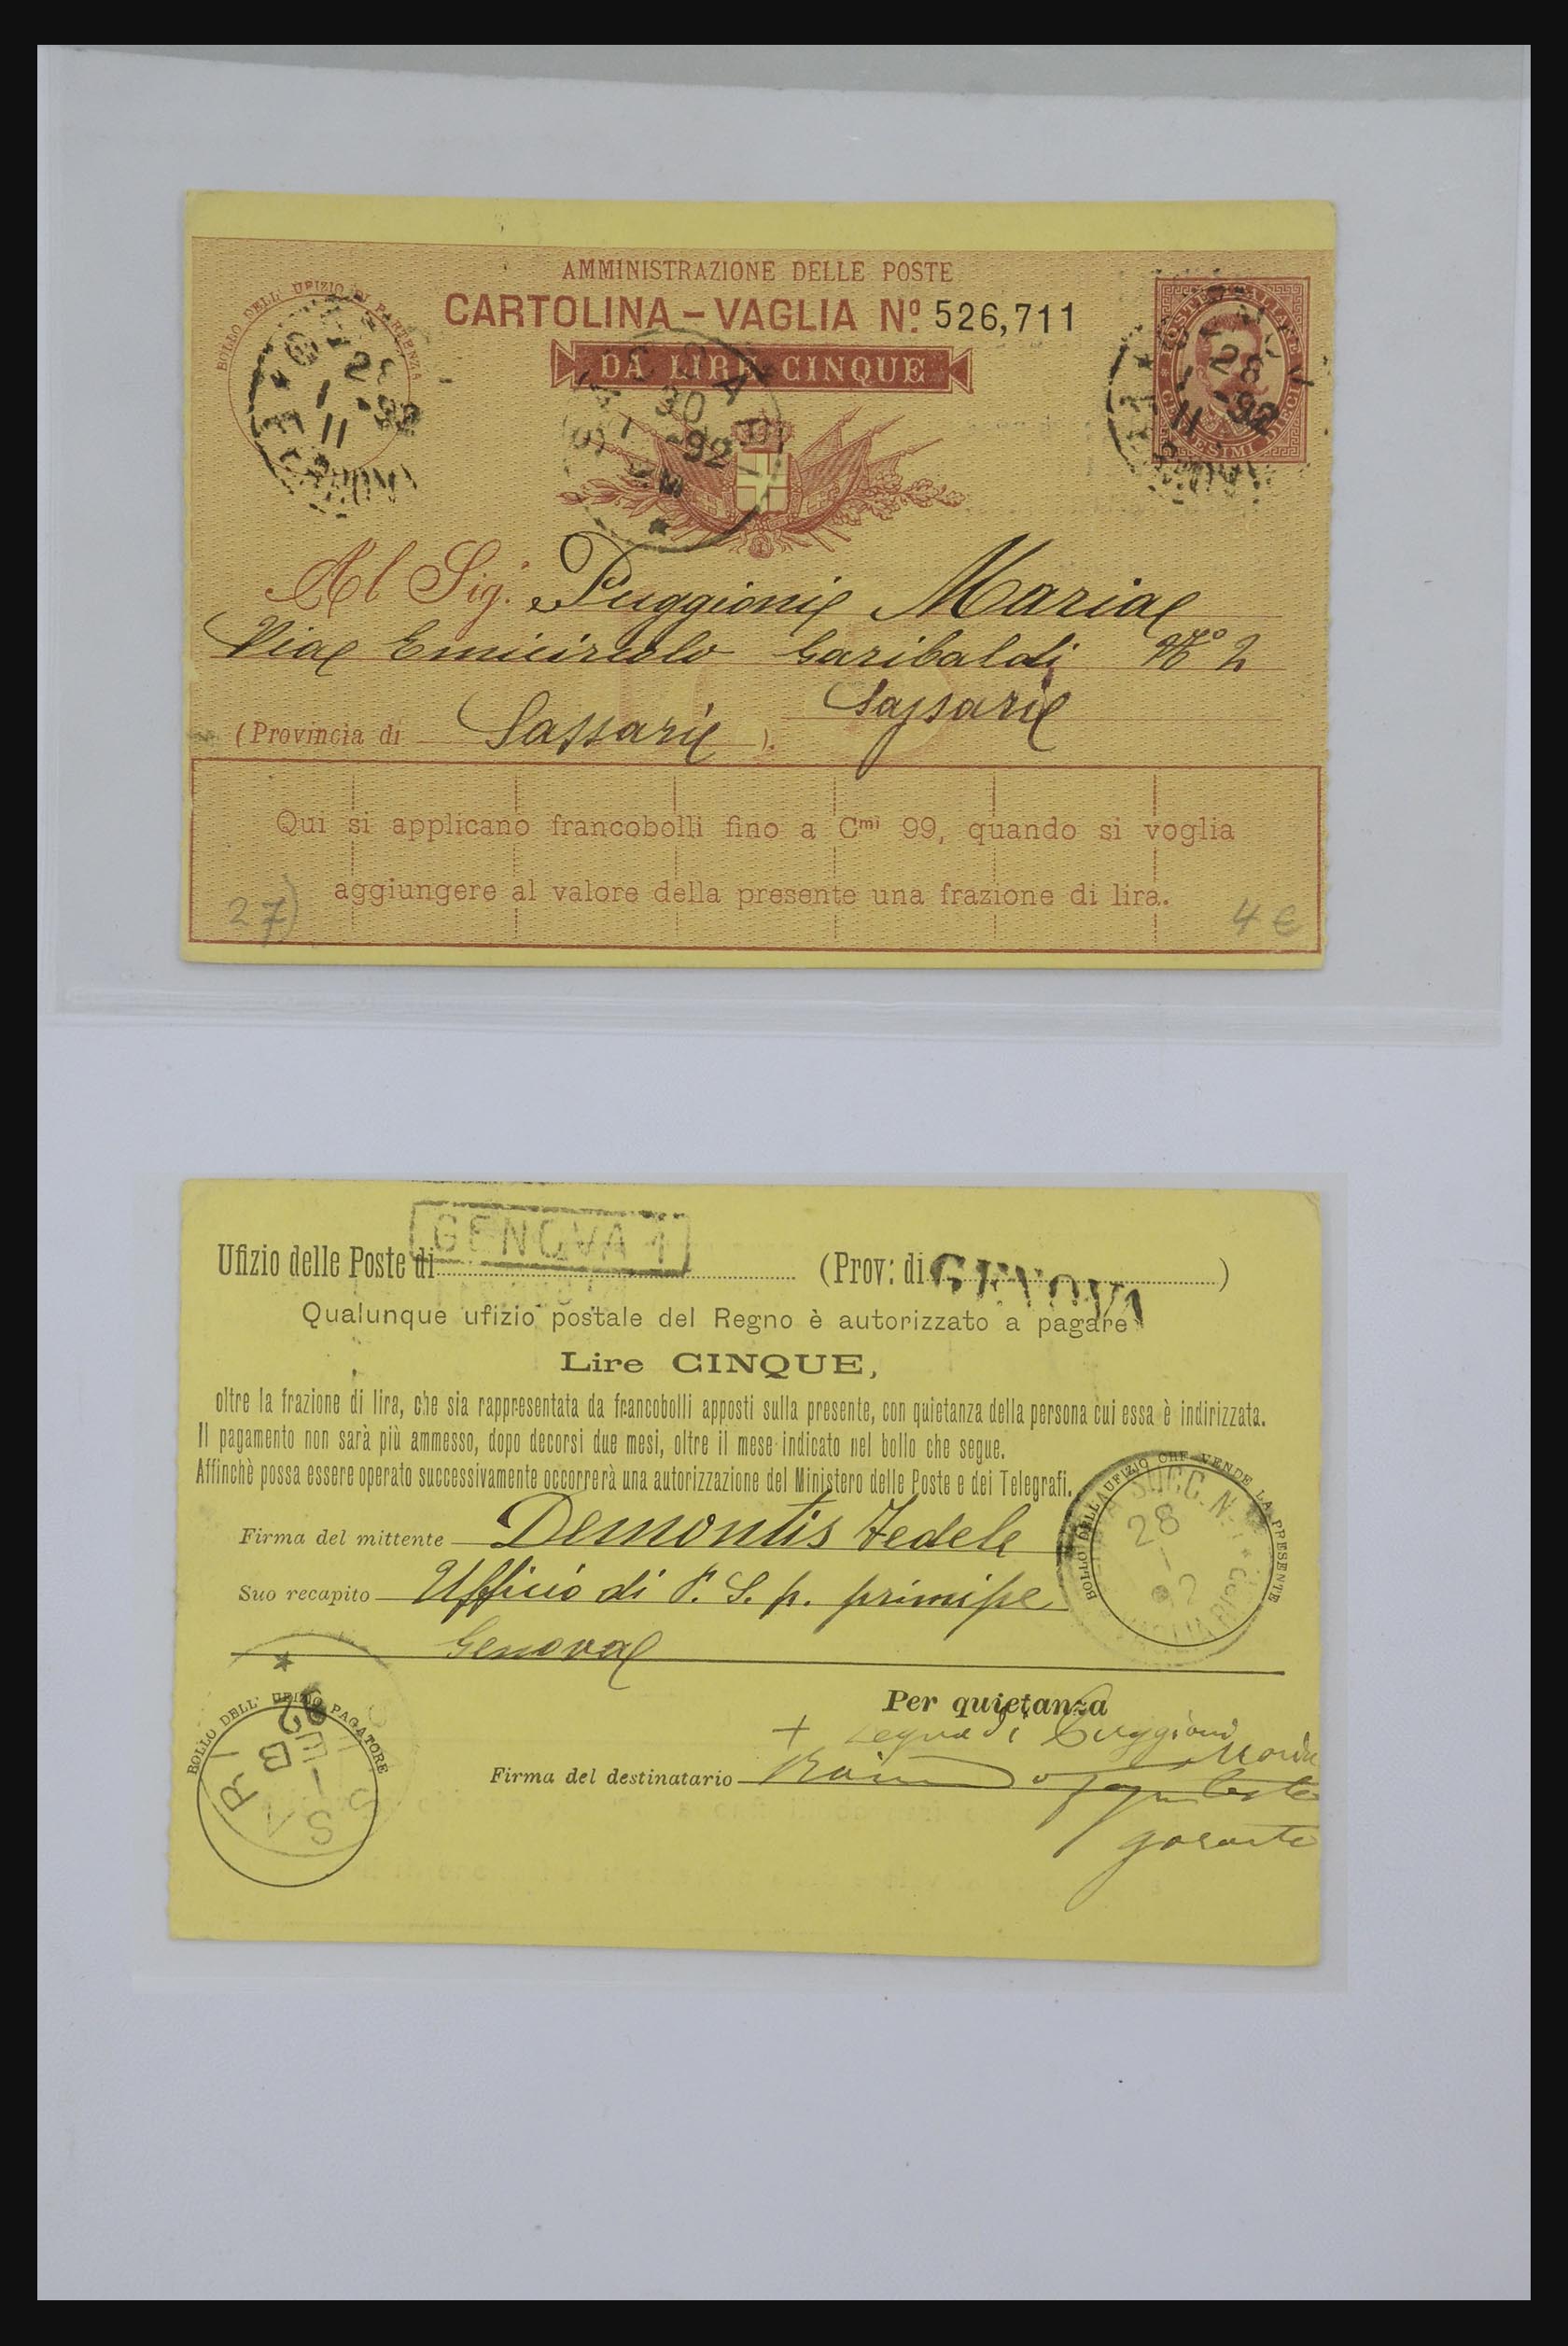 AMMINISTRAZIONE DELLE POSTE
CARTOLINA - VAGLIA Nº. 526,711
DA LIRE CINQUE
BOLLO DELL' UFIZIO DI PARTENZA
28
1 -92
11
POSTE ITALIANE
CENTESIMI DIECI
28
1 -92
11
30
1 -92
Al Sig. Puggioni Maria
Via Emiciclo Garibaldi Nº 2
Sassari
(Provincia di Sassari ).
Qui si applicano francobolli fino a Cmi 99, quando si voglia
aggiungere al valore della presente una frazione di lira.
27)
4 €
Ufizio delle Poste di GENOVA 1 (Prov: di GENOVA )
Qualunque ufizio postale del Regno è autorizzato a pagare
Lire CINQUE,
oltre la frazione di lira, che sia rappresentata da francobolli apposti sulla presente, con quietanza della persona cui essa è indirizzata.
Il pagamento non sarà più ammesso, dopo decorsi due mesi, oltre il mese indicato nel bollo che segue.
Affinchè possa essere operato successivamente occorrerà una autorizzazione del Ministero delle Poste e dei Telegrafi.
BOLLO DELL' UFIZIO CHE VENDE LA PRESENTE
SUCC. N. 1
28
1
92
Firma del mittente Demontis Fedele
Suo recapito Ufficio di P. S. p. principe
Genova
BOLLO DELL' UFIZIO PAGATORE
SASSARI
1 FEB 92
Per quietanza
+ Segno di Puggioni
Maria
Firma del destinatario